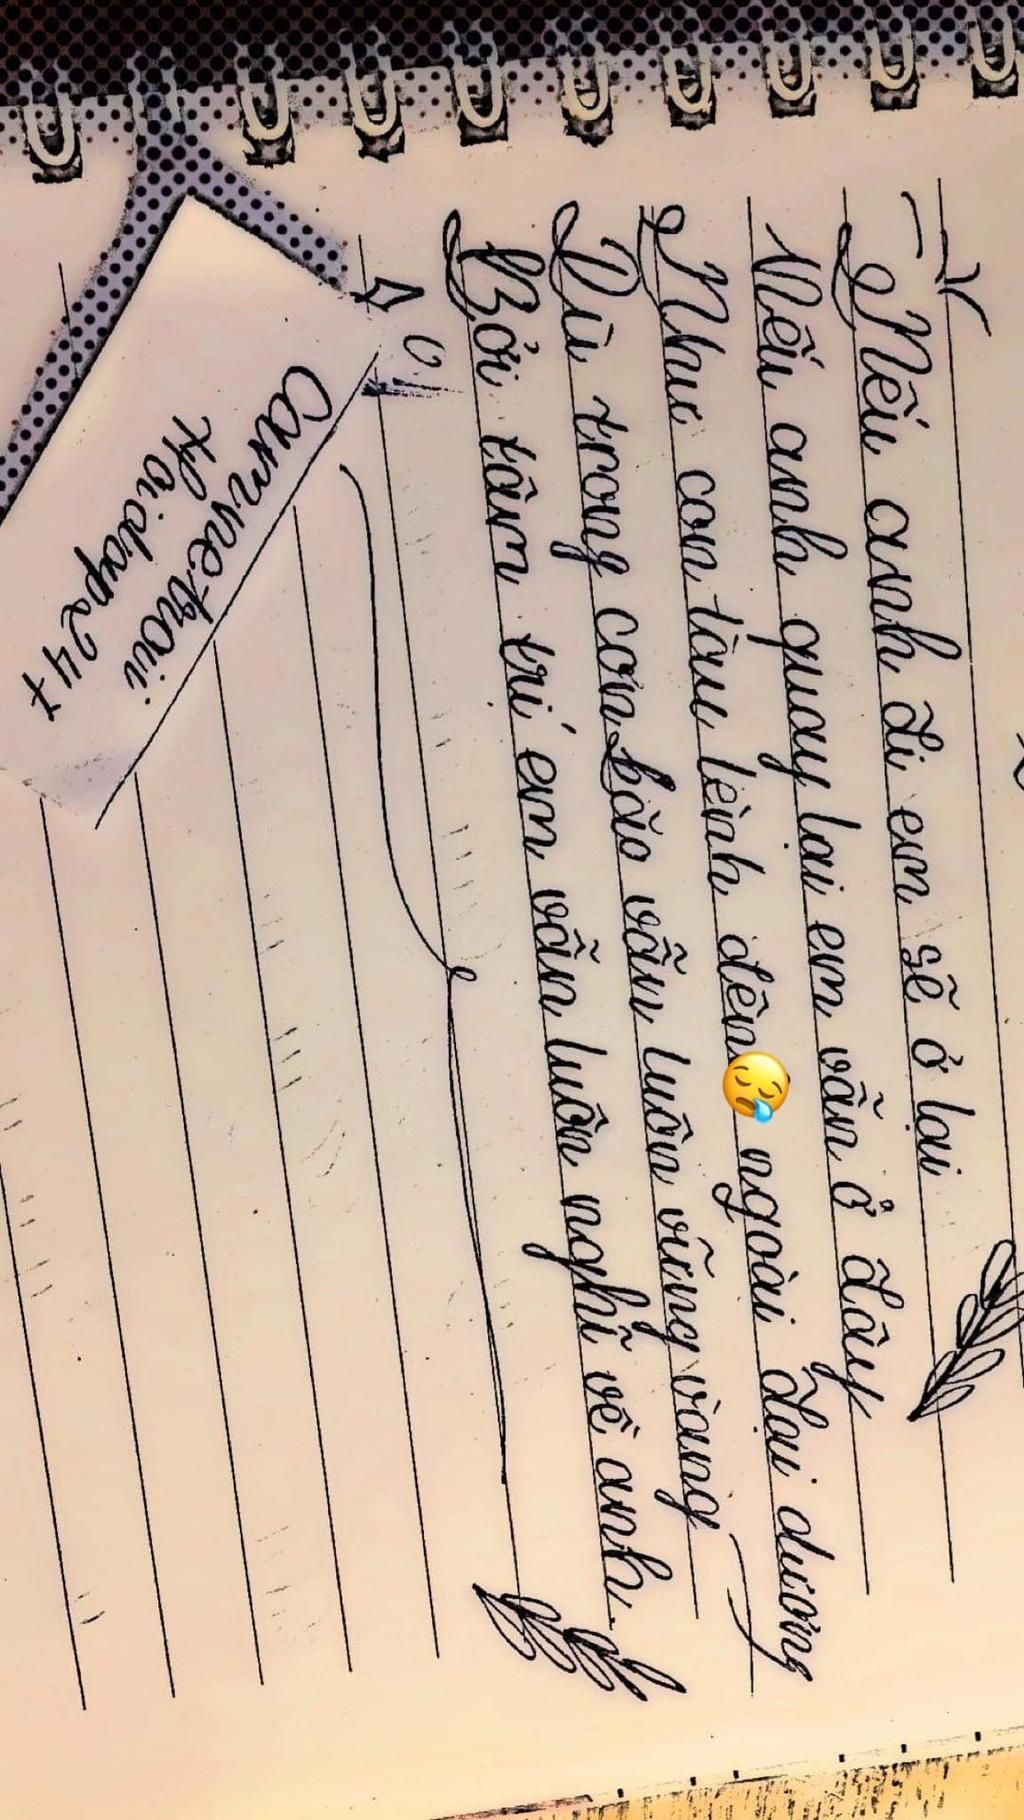 Nếu anh đi em sẽ ở lại
Nếu anh quay lại em vẫn ở đây
Như con tàu lênh đênh 😪 ngoài đại dương
Dù trong cơn bão vẫn luôn vững vàng
Bởi tâm trí em vẫn luôn nghĩ về anh.
Camnetroui
Hoidap247